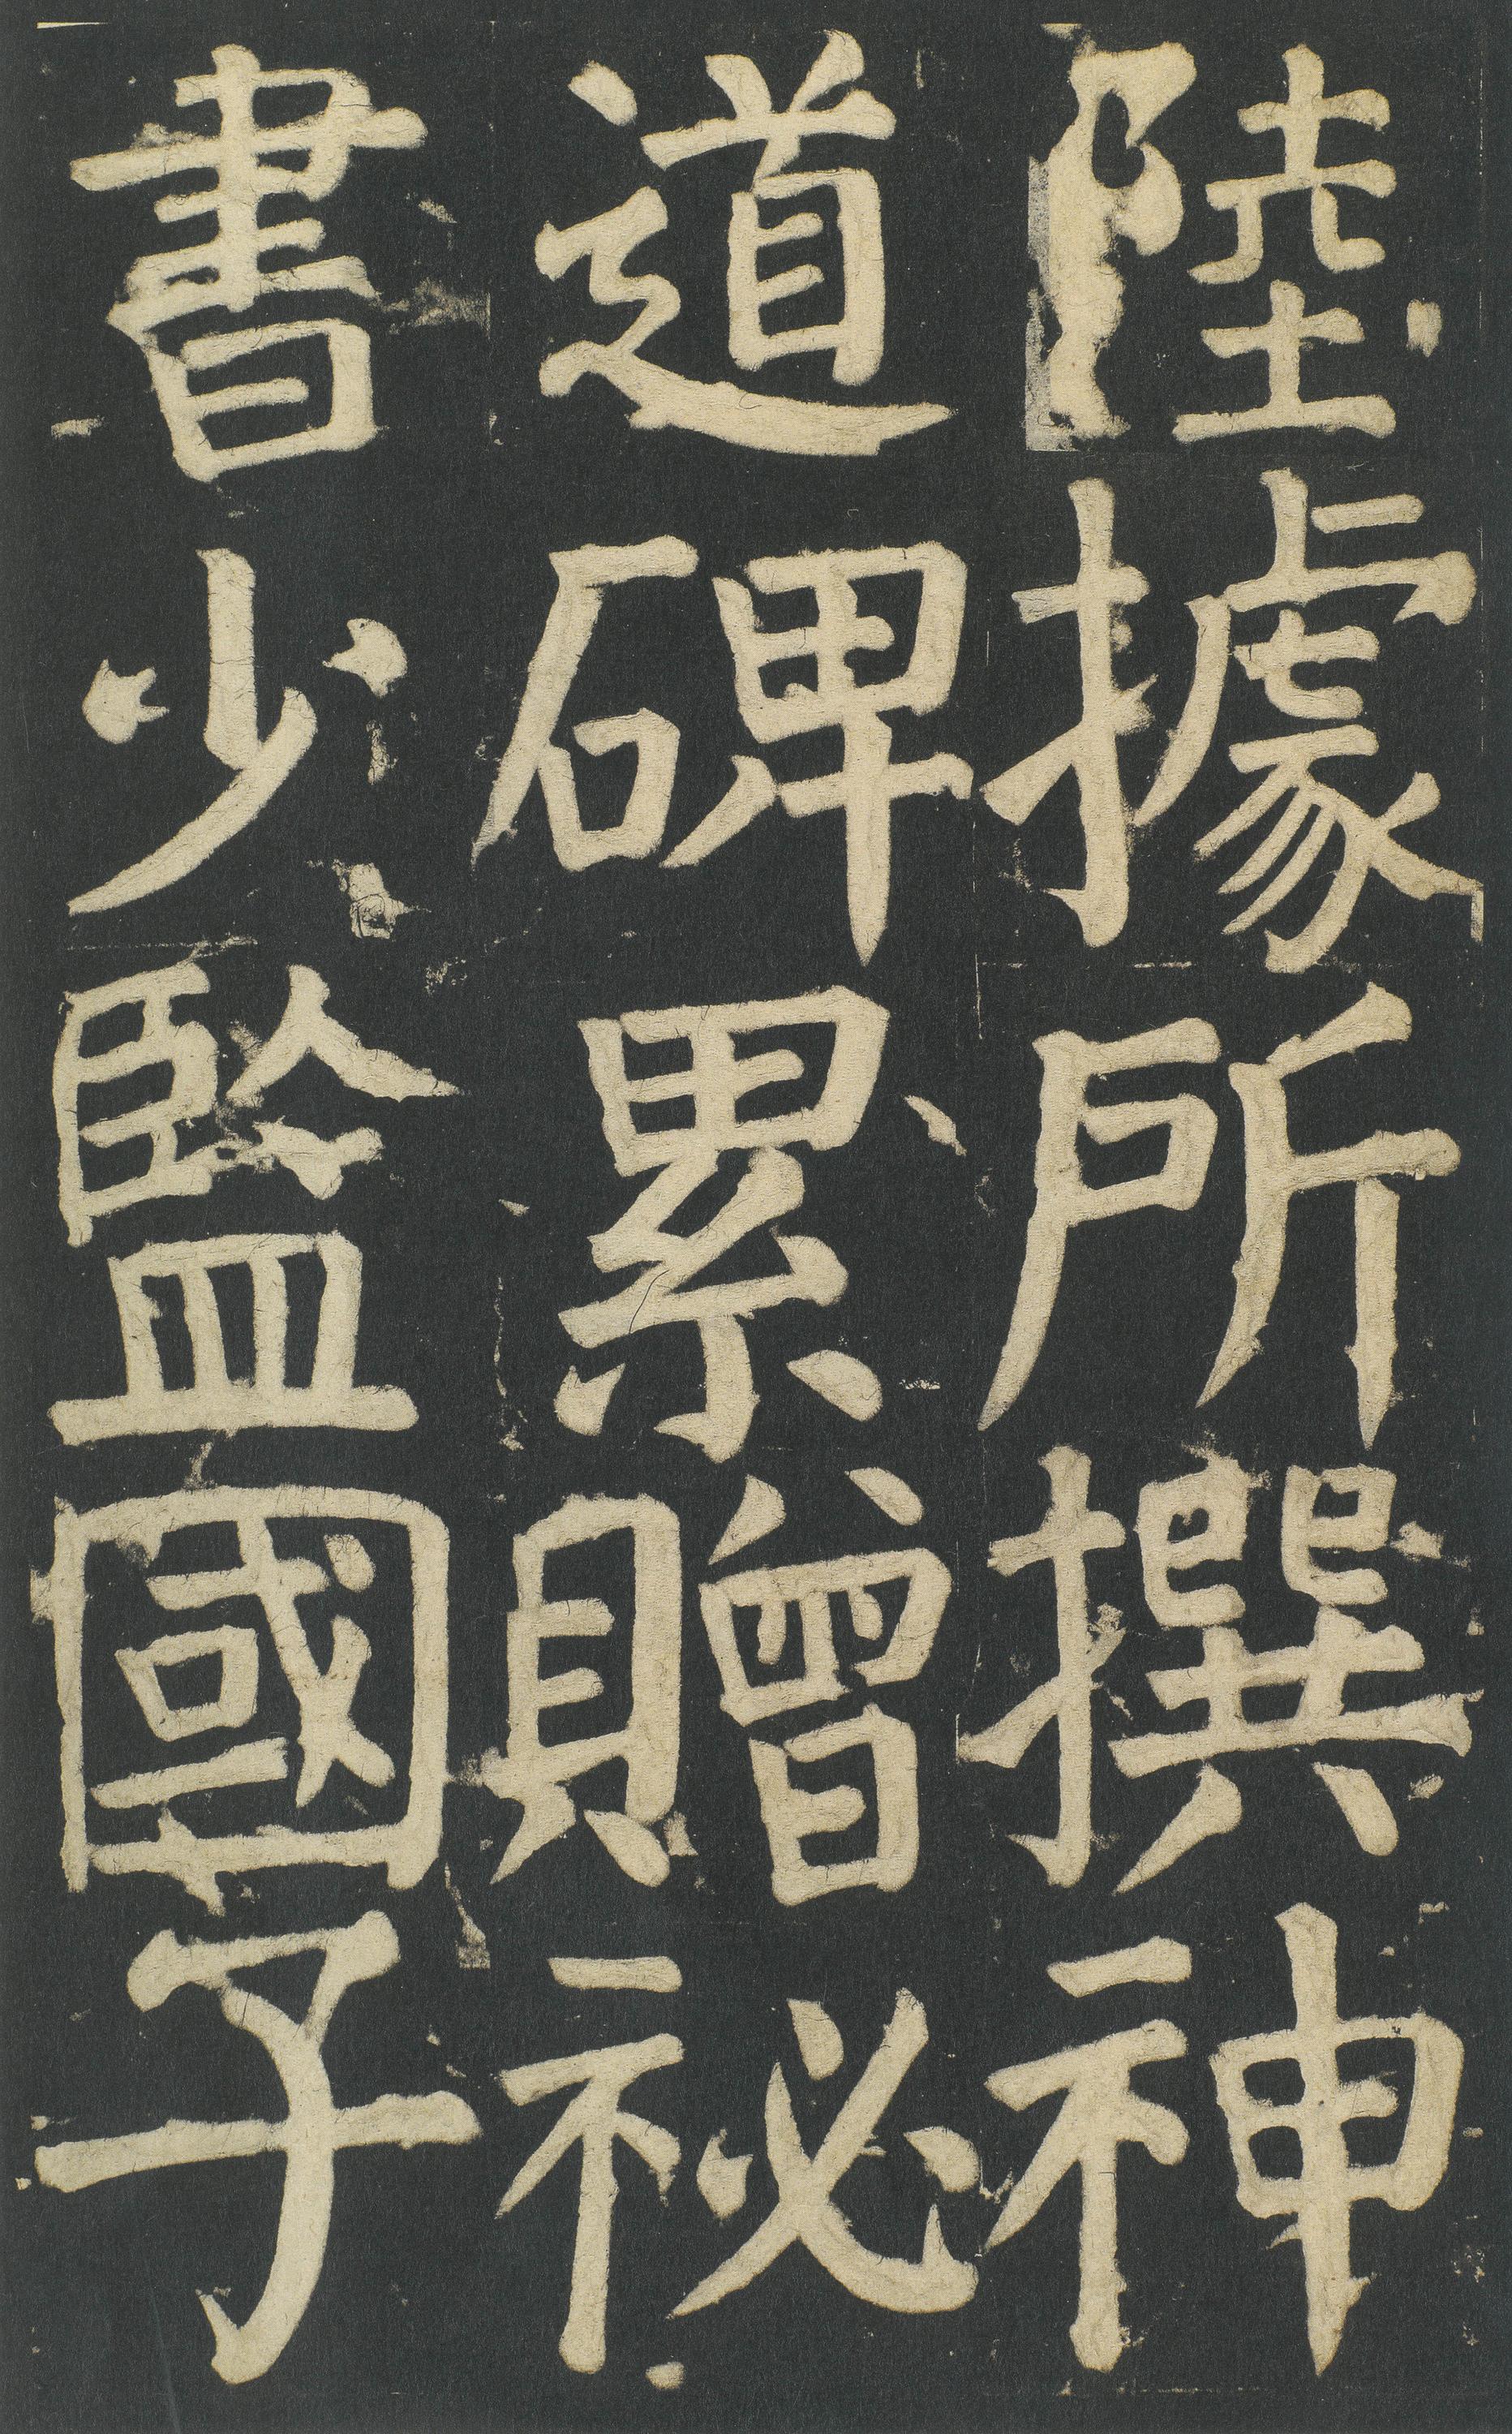 陸據所撰神
道碑累贈祕
書少監國子